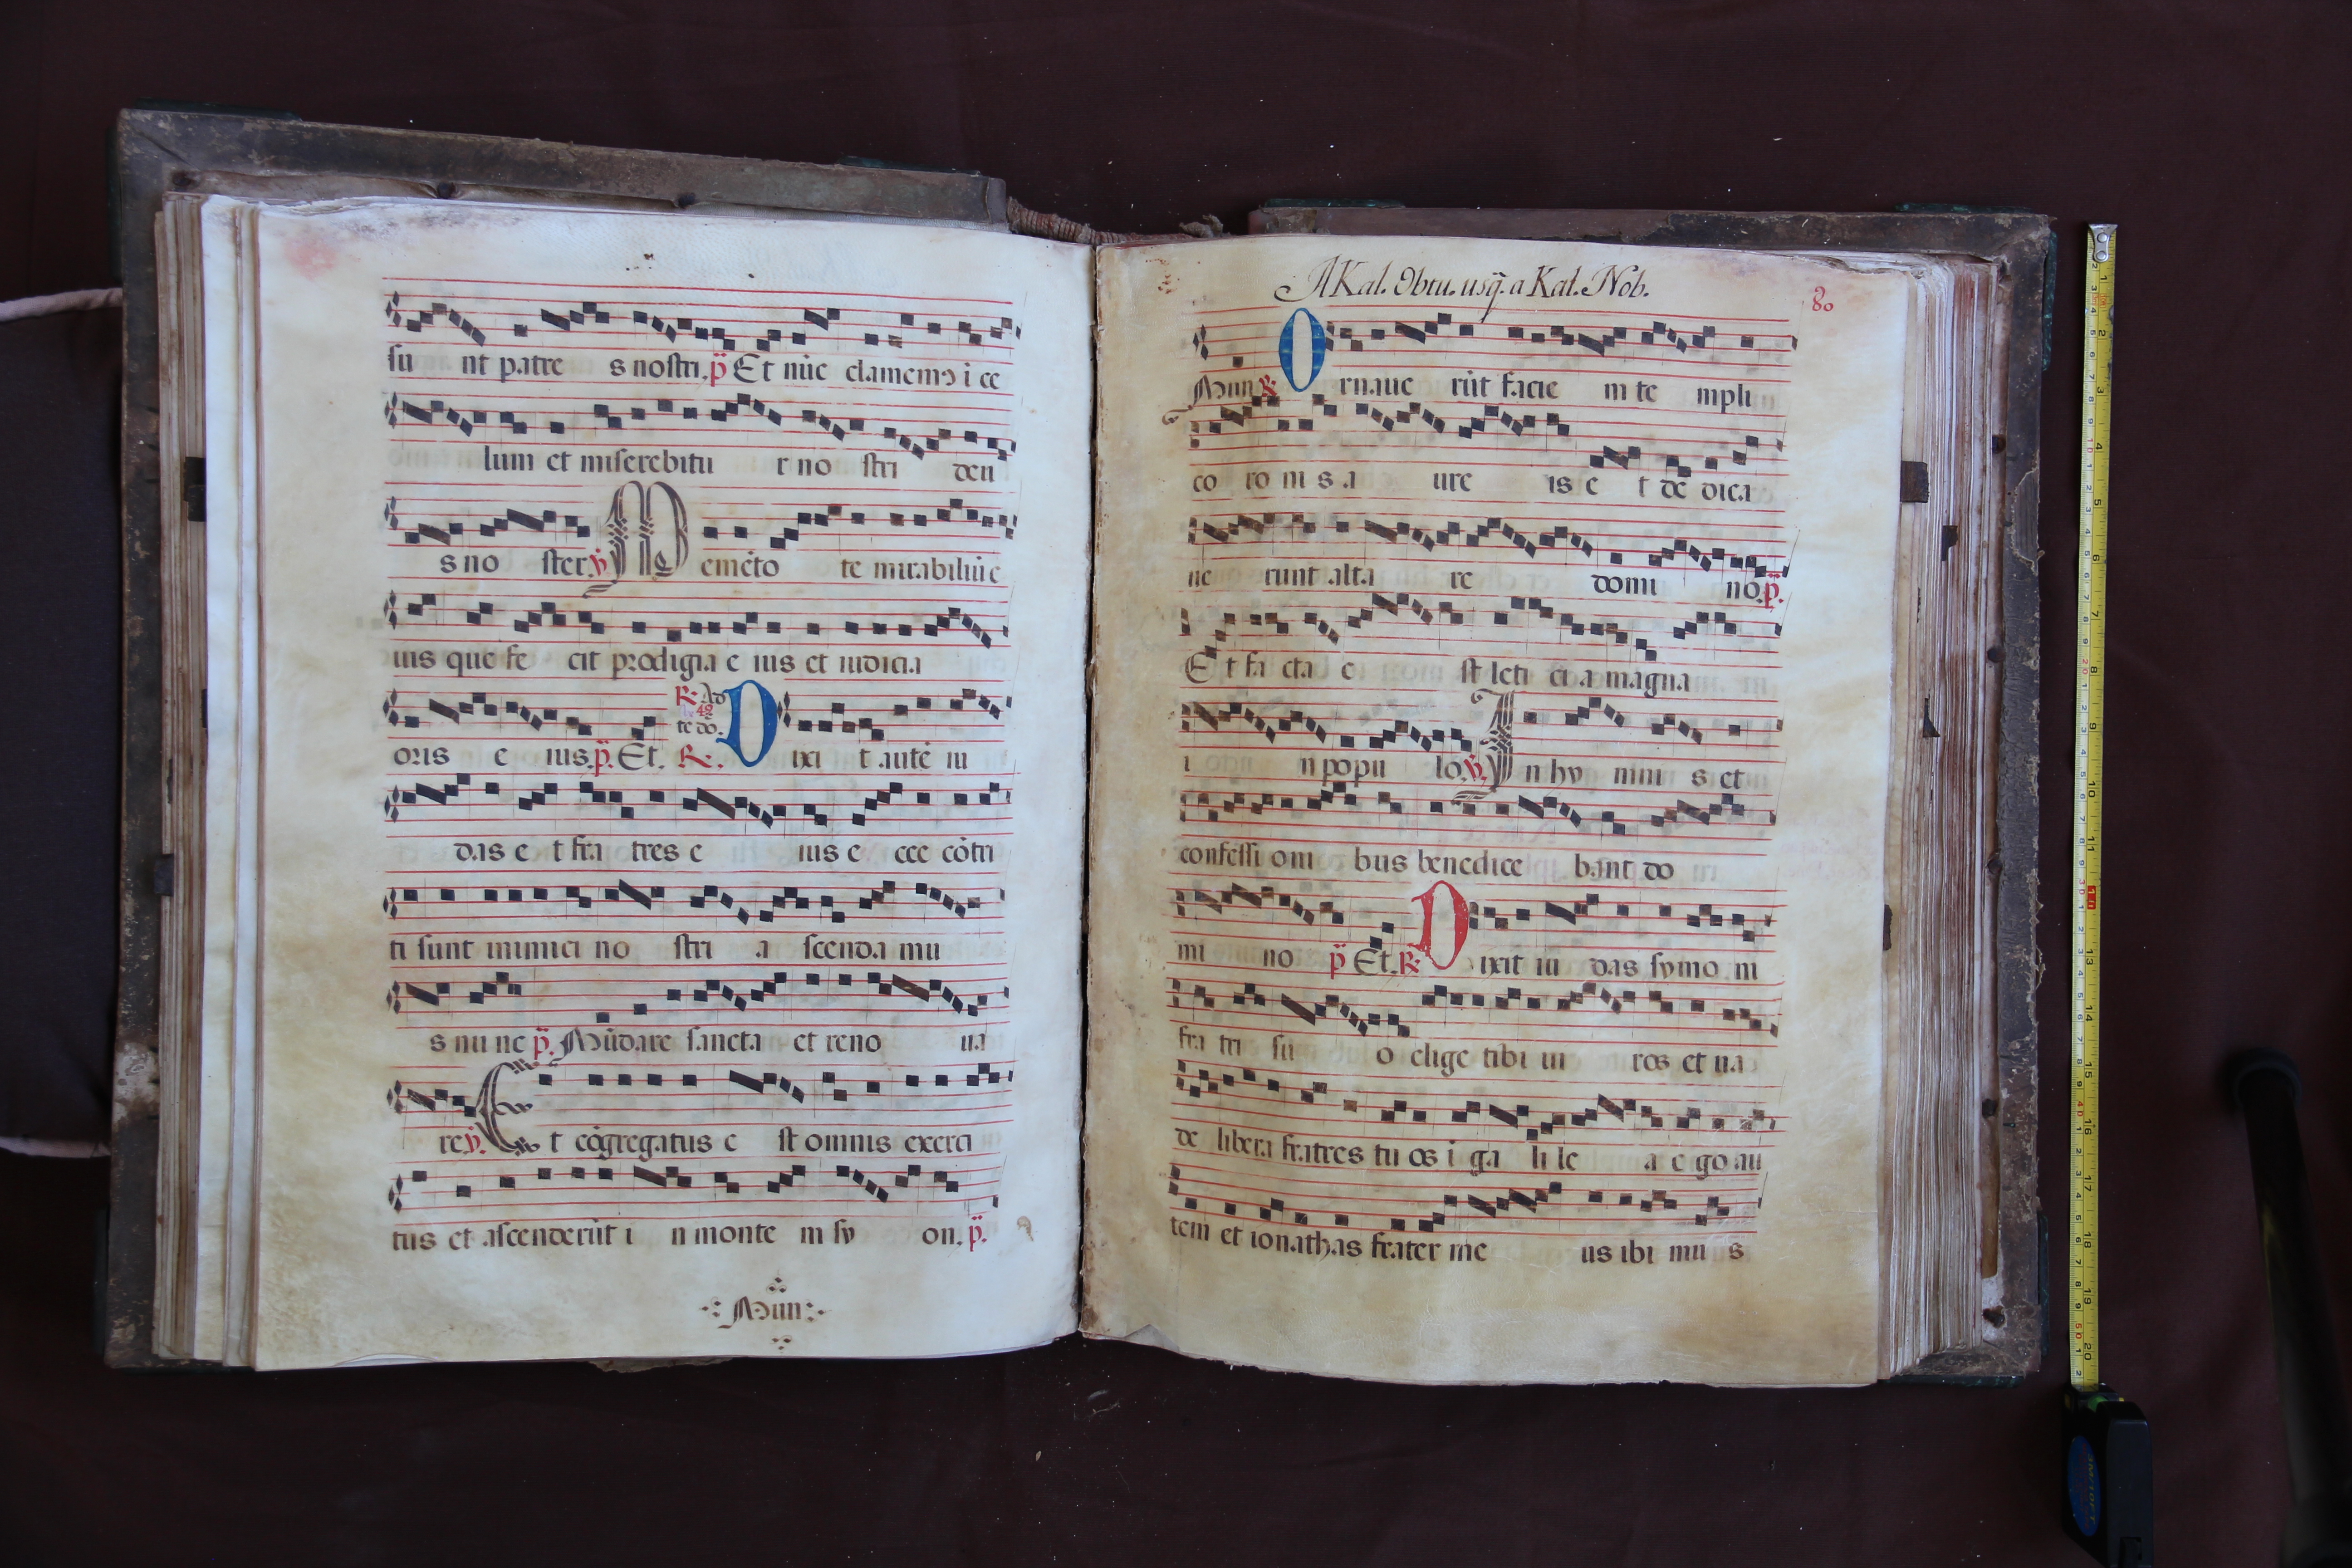 su nt patre s nostri. p̈ Et nūc clamemꝰ i ce
lum et miserebitu r no stri deu
s no ster. ℣ Memēto te mirabiliū e
ius que fe cit prodigia e ius et iudicia
℟. Ad
42
te do.
oris e ius. p̈. Et. ℟. Dixi t autē iu
das e t fra tres e ius e cce cōtri
ti sunt inimici no stri a scenda mu
s nu nc p̈. Mūdare sancta et reno ua
re ℣. Et cōgregatus e st omnis exerci
tus et ascenderūt i n monte m sy on. p̈.
Mun
A Kal. Obtu. usq̃. a Kal. Nob.
80
Mun ℟ Ornaue rūt facie m te mpli
co ro ni s a ure is e t de dica
ue runt alta re domi no. p̈.
Et fa cta e st leti ci a magna
i n popu lo. ℣. In hy mni s et
confessi oni bus benedice bant do
mi no p̈ Et. ℟ Dixit iu das symo ni
fra tri su o elige tibi ui ros et ua
de libera fratres tu os i ga li le a e go au
tem et ionathas frater me us ibi mu s